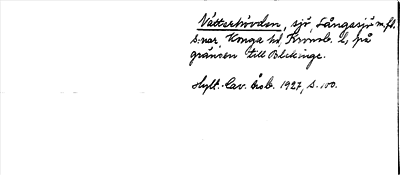 Vätterhövden, sjö, Långasjö m. fl.
s:nar, Konga hd, Kronob. l., på
gränsen till Blekinge.
Hylt.-Cav. årsb. 1927, s. 100.